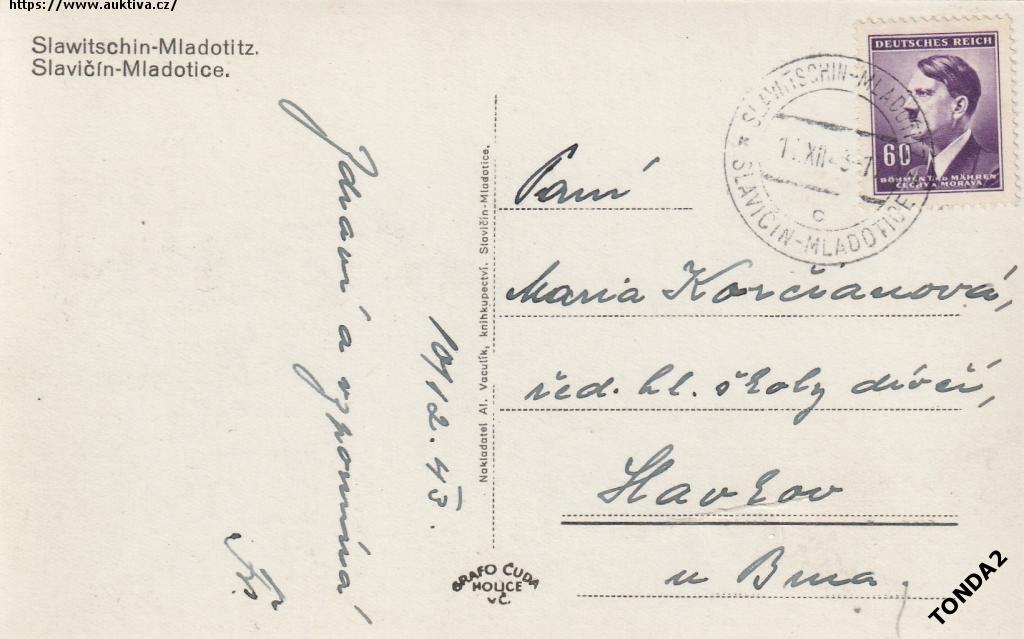 https://www.auktiva.cz/
Slawitschin-Mladotitz.
Slavičín-Mladotice.
Zdraví a vzpomíná
10/12. 43.
Nakladatel Al. Vaculík, knihkupectví. Slavičín-Mladotice.
GRAFO ČUDA
HOLICE
v Č.
DEUTSCHES REICH
60
BÖHMEN UND MÄHREN
ČECHY A MORAVA
SLAWITSCHIN-MLADOTITZ
XII
c
* SLAVIČÍN-MLADOTICE
Paní
Maria Korčianová,
řed. hl. školy dívčí,
Slavkov
u Brna.
TONDA2